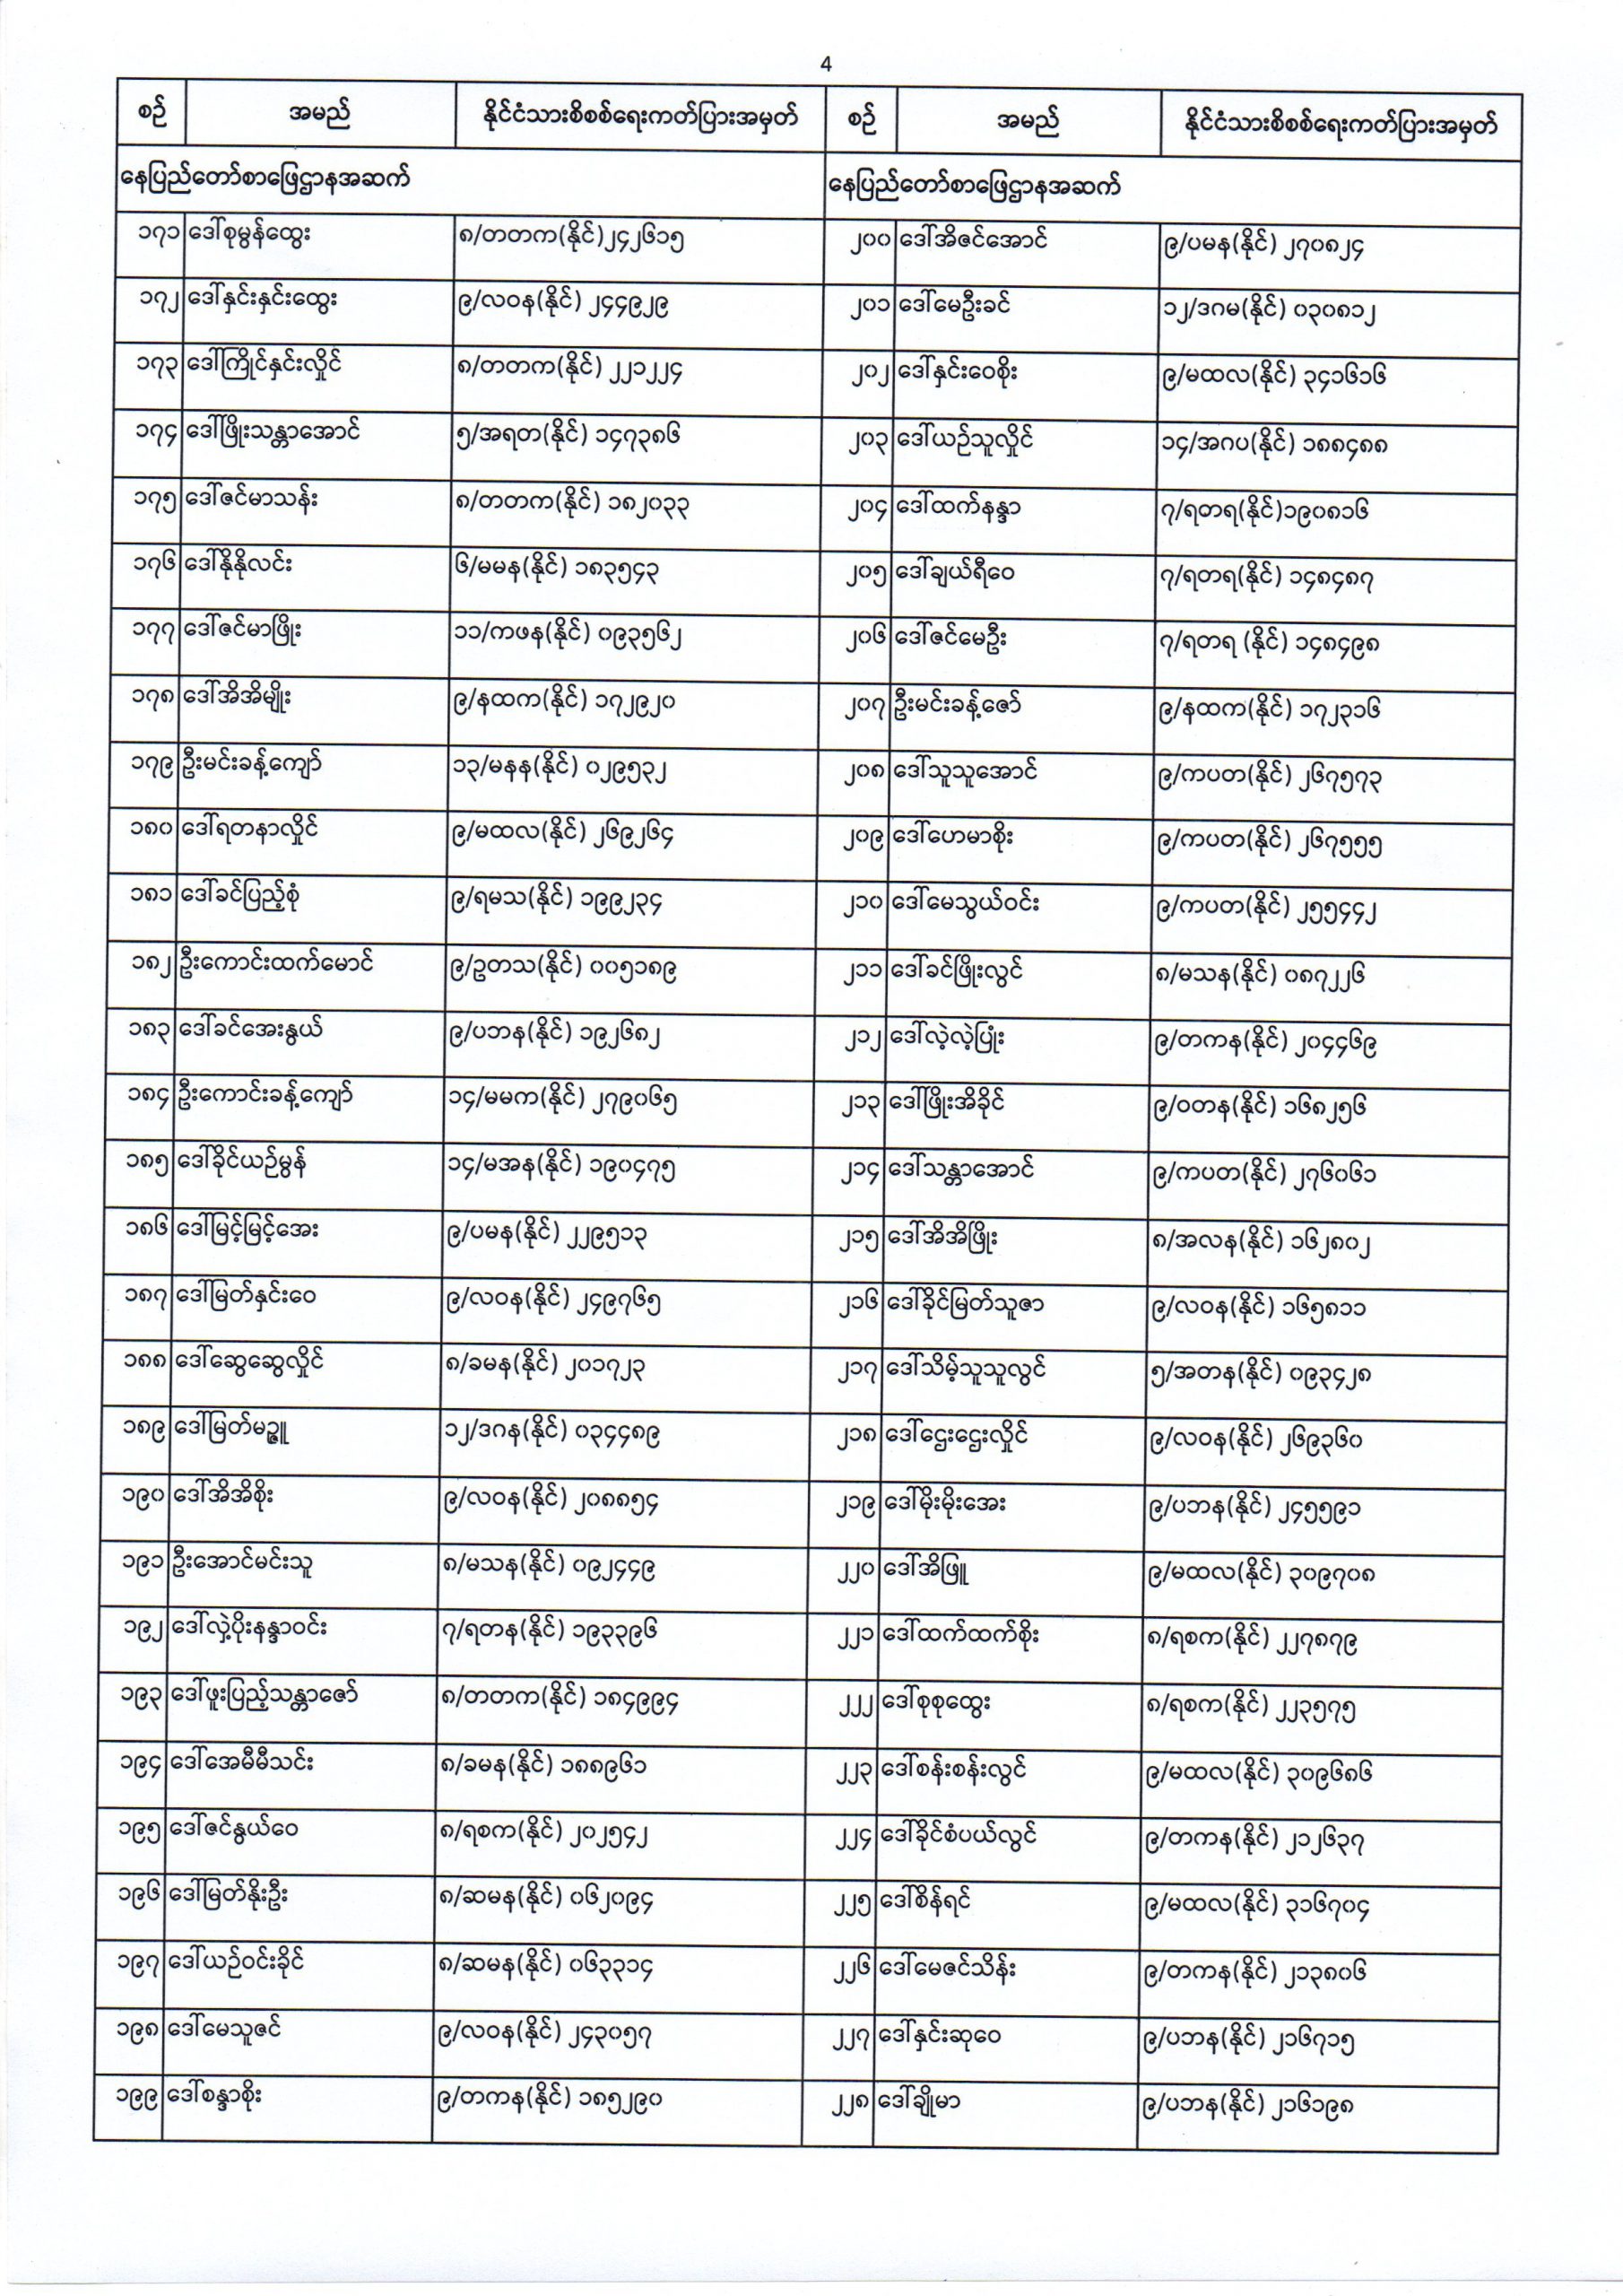 4
စဉ် အမည် နိုင်ငံသားစိစစ်ရေးကတ်ပြားအမှတ် စဉ် အမည် နိုင်ငံသားစိစစ်ရေးကတ်ပြားအမှတ်
နေပြည်တော်စာဖြေဌာနအဆက် နေပြည်တော်စာဖြေဌာနအဆက်
၁၇၁ ဒေါ်စုမွန်ထွေး ၈/တတက(နိုင်)၂၄၂၆၁၅ ၂၀၀ ဒေါ်အိဇင်အောင် ၉/ပမန(နိုင်) ၂၇၀၈၂၄
၁၇၂ ဒေါ်နှင်းနှင်းထွေး ၉/လဝန(နိုင်) ၂၄၄၉၂၉ ၂၀၁ ဒေါ်မေဦးခင် ၁၂/ဒဂမ(နိုင်) ၀၃၀၈၁၂
၁၇၃ ဒေါ်ကြိုင်နှင်းလှိုင် ၈/တတက(နိုင်) ၂၂၁၂၂၄ ၂၀၂ ဒေါ်နှင်းဝေစိုး ၉/မထလ(နိုင်) ၃၄၁၆၁၆
၁၇၄ ဒေါ်ဖြိုးသန္တာအောင် ၅/အရတ(နိုင်) ၁၄၇၃၈၆ ၂၀၃ ဒေါ်ယဉ်သူလှိုင် ၁၄/အဂပ(နိုင်) ၁၈၈၄၈၈
၁၇၅ ဒေါ်ဇင်မာသန်း ၈/တတက(နိုင်) ၁၈၂၀၃၃ ၂၀၄ ဒေါ်ထက်နန္ဒာ ၇/ရတရ(နိုင်)၁၉၀၈၁၆
၁၇၆ ဒေါ်နိုနိုလင်း ၆/မမန(နိုင်) ၁၈၃၅၄၃ ၂၀၅ ဒေါ်ချယ်ရီဝေ ၇/ရတရ(နိုင်) ၁၄၈၄၈၇
၁၇၇ ဒေါ်ဇင်မာဖြိုး ၁၁/ကဖန(နိုင်) ၀၉၃၅၆၂ ၂၀၆ ဒေါ်ဇင်မေဦး ၇/ရတရ (နိုင်) ၁၄၈၄၉၈
၁၇၈ ဒေါ်အိအိမျိုး ၉/နထက(နိုင်) ၁၇၂၉၂၀ ၂၀၇ ဦးမင်းခန့်ဇော် ၉/နထက(နိုင်) ၁၇၂၃၁၆
၁၇၉ ဦးမင်းခန့်ကျော် ၁၃/မနန(နိုင်) ၀၂၉၅၃၂ ၂၀၈ ဒေါ်သူသူအောင် ၉/ကပတ(နိုင်) ၂၆၇၅၇၃
၁၈၀ ဒေါ်ရတနာလှိုင် ၉/မထလ(နိုင်) ၂၆၉၂၆၄ ၂၀၉ ဒေါ်ဟေမာစိုး ၉/ကပတ(နိုင်) ၂၆၇၅၅၅
၁၈၁ ဒေါ်ခင်ပြည့်စုံ ၉/ရမသ(နိုင်) ၁၉၉၂၃၄ ၂၁၀ ဒေါ်မေသွယ်ဝင်း ၉/ကပတ(နိုင်) ၂၅၅၄၄၂
၁၈၂ ဦးကောင်းထက်မောင် ၉/ဥတသ(နိုင်) ၀၀၅၁၈၉ ၂၁၁ ဒေါ်ခင်ဖြိုးလွင် ၈/မသန(နိုင်) ၀၈၇၂၂၆
၁၈၃ ဒေါ်ခင်အေးနွယ် ၉/ပဘန(နိုင်) ၁၉၂၆၈၂ ၂၁၂ ဒေါ်လဲ့လဲ့ပြုံး ၉/တကန(နိုင်) ၂၀၄၄၆၉
၁၈၄ ဦးကောင်းခန့်ကျော် ၁၄/မမက(နိုင်) ၂၇၉၀၆၅ ၂၁၃ ဒေါ်ဖြိုးအိခိုင် ၉/ဝတန(နိုင်) ၁၆၈၂၅၆
၁၈၅ ဒေါ်ခိုင်ယဉ်မွန် ၁၄/မအန(နိုင်) ၁၉၀၄၇၅ ၂၁၄ ဒေါ်သန္တာအောင် ၉/ကပတ(နိုင်) ၂၇၆၀၆၁
၁၈၆ ဒေါ်မြင့်မြင့်အေး ၉/ပမန(နိုင်) ၂၂၉၅၁၃ ၂၁၅ ဒေါ်အိအိဖြိုး ၈/အလန(နိုင်) ၁၆၂၈၀၂
၁၈၇ ဒေါ်မြတ်နှင်းဝေ ၉/လဝန(နိုင်) ၂၄၉၇၆၅ ၂၁၆ ဒေါ်ခိုင်မြတ်သူဇာ ၉/လဝန(နိုင်) ၁၆၅၈၁၁
၁၈၈ ဒေါ်ဆွေဆွေလှိုင် ၈/ခမန(နိုင်) ၂၀၁၇၂၃ ၂၁၇ ဒေါ်သိမ့်သူသူလွင် ၅/အတန(နိုင်) ၀၉၃၄၂၈
၁၈၉ ဒေါ်မြတ်မဉ္ဇူ ၁၂/ဒဂန(နိုင်) ၀၃၄၄၈၉ ၂၁၈ ဒေါ်ဌေးဌေးလှိုင် ၉/လဝန(နိုင်) ၂၆၉၃၆၀
၁၉၀ ဒေါ်အိအိစိုး ၉/လဝန(နိုင်) ၂၀၈၈၅၄ ၂၁၉ ဒေါ်မိုးမိုးအေး ၉/ပဘန(နိုင်) ၂၄၅၅၉၁
၁၉၁ ဦးအောင်မင်းသူ ၈/မသန(နိုင်) ၀၉၂၄၄၉ ၂၂၀ ဒေါ်အိဖြူ ၉/မထလ(နိုင်) ၃၀၉၇၀၈
၁၉၂ ဒေါ်လှဲ့ပိုးနန္ဒာဝင်း ၇/ရတန(နိုင်) ၁၉၃၃၉၆ ၂၂၁ ဒေါ်ထက်ထက်စိုး ၈/ရစက(နိုင်) ၂၂၇၈၇၉
၁၉၃ ဒေါ်ဖူးပြည့်သန္တာဇော် ၈/တတက(နိုင်) ၁၈၄၉၉၄ ၂၂၂ ဒေါ်စုစုထွေး ၈/ရစက(နိုင်) ၂၂၃၅၇၅
၁၉၄ ဒေါ်အေမီမီသင်း ၈/ခမန(နိုင်) ၁၈၈၉၆၁ ၂၂၃ ဒေါ်စန်းစန်းလွင် ၉/မထလ(နိုင်) ၃၀၉၆၈၆
၁၉၅ ဒေါ်ဇင်နွယ်ဝေ ၈/ရစက(နိုင်) ၂၀၂၅၄၂ ၂၂၄ ဒေါ်ခိုင်စံပယ်လွင် ၉/တကန(နိုင်) ၂၁၂၆၃၇
၁၉၆ ဒေါ်မြတ်နိုးဦး ၈/ဆမန(နိုင်) ၀၆၂၀၉၄ ၂၂၅ ဒေါ်စိန်ရင် ၉/မထလ(နိုင်) ၃၁၆၇၀၄
၁၉၇ ဒေါ်ယဉ်ဝင်းခိုင် ၈/ဆမန(နိုင်) ၀၆၃၃၁၄ ၂၂၆ ဒေါ်မေဇင်သိန်း ၉/တကန(နိုင်) ၂၁၃၈၀၆
၁၉၈ ဒေါ်မေသူဇင် ၉/လဝန(နိုင်) ၂၄၃၀၅၇ ၂၂၇ ဒေါ်နှင်းဆုဝေ ၉/ပဘန(နိုင်) ၂၁၆၇၁၅
၁၉၉ ဒေါ်စန္ဒာစိုး ၉/တကန(နိုင်) ၁၈၅၂၉၀ ၂၂၈ ဒေါ်ချိုမာ ၉/ပဘန(နိုင်) ၂၁၆၁၉၈